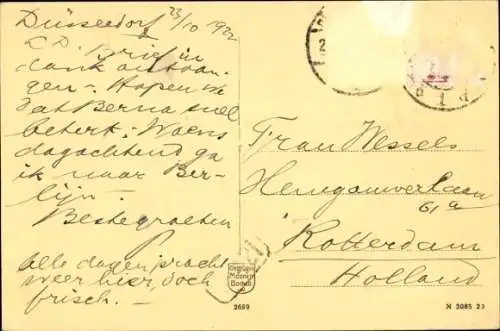 Düsseldorf 23/10 1922
L.D. Brief in
dank ontvan-
gen - Hopen we
dat Berna snel
beterk. - Woens
dagachtend ga
ik naar Ber-
lijn. -
Beste groeten
P
Alle dagen pracht
weer hier, doch
frisch. -
Frau Wessels
61a
Rotterdam
Holland
2669
N 3085 23